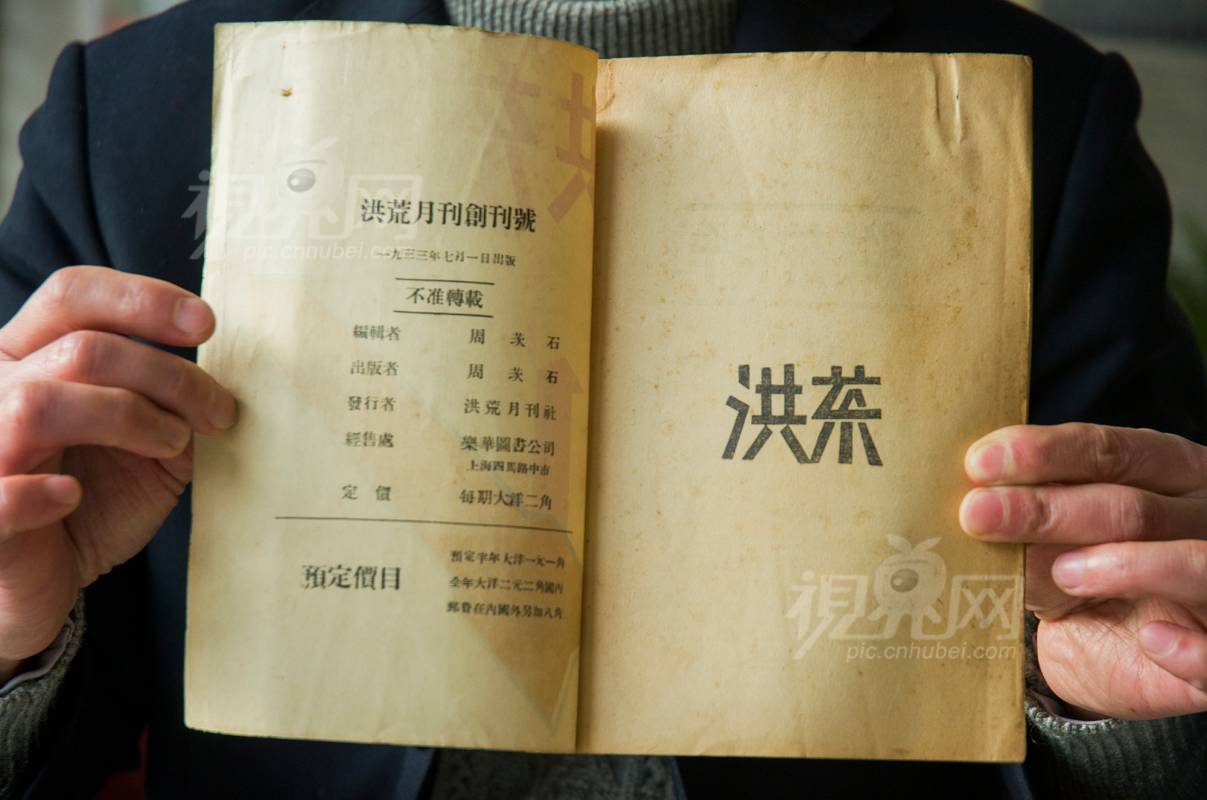 洪荒月刊創刊號
一九三三年七月一日出版
不准轉載
編輯者 周茨石
出版者 周茨石
發行者 洪荒月刊社
經售處 樂華圖書公司
上海四馬路中市
定價 每期大洋二角
預定價目
預定半年大洋一元一角
全年大洋二元二角國內
郵費在內國外另加八角
洪荒
視界网
pic.cnhubei.com
視界网
pic.cnhubei.com